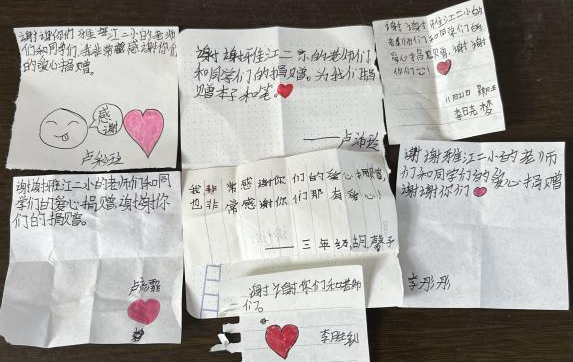 谢谢你们雅江二小的老师
们和同学们,我非常感谢你们
的爱心捐赠。
感谢
谢谢雅江二小的老师们
和同学们的捐赠。为我们捐
赠本子和笔。
谢谢雅江二小的
老师们和同学们的
爱心捐赠,谢谢
你们
11月21日
谢谢雅江二小的老师们和同
学们的爱心捐赠,谢谢你
们的捐赠。
我非常感谢你们的爱心捐赠
也非常感谢你们那有爱心!
——三年级胡馨予
谢谢雅江二小的老师
们和同学们的爱心捐赠
谢谢你们
李彤彤
谢谢你们和老师
们。
李胜利